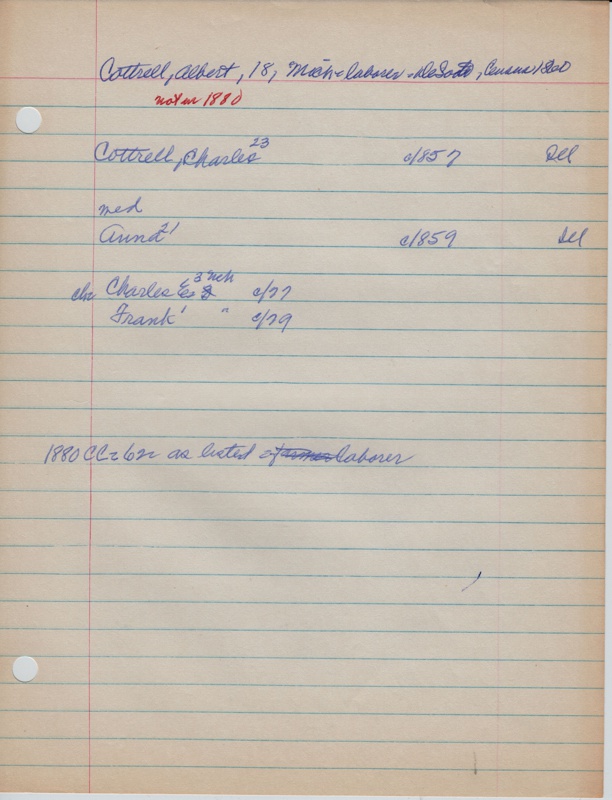 Cottrell, Albert, 18, Mich - laborer - DeSoto, Census 1860
not in 1880
Cottrell, Charles 23 c/1857 Del
med
Anna 21 c/1859 Del
chr Charles E 3 Neb c/77
Frank 1 " c/79
1880 CC - 62 - as listed of farmer laborer